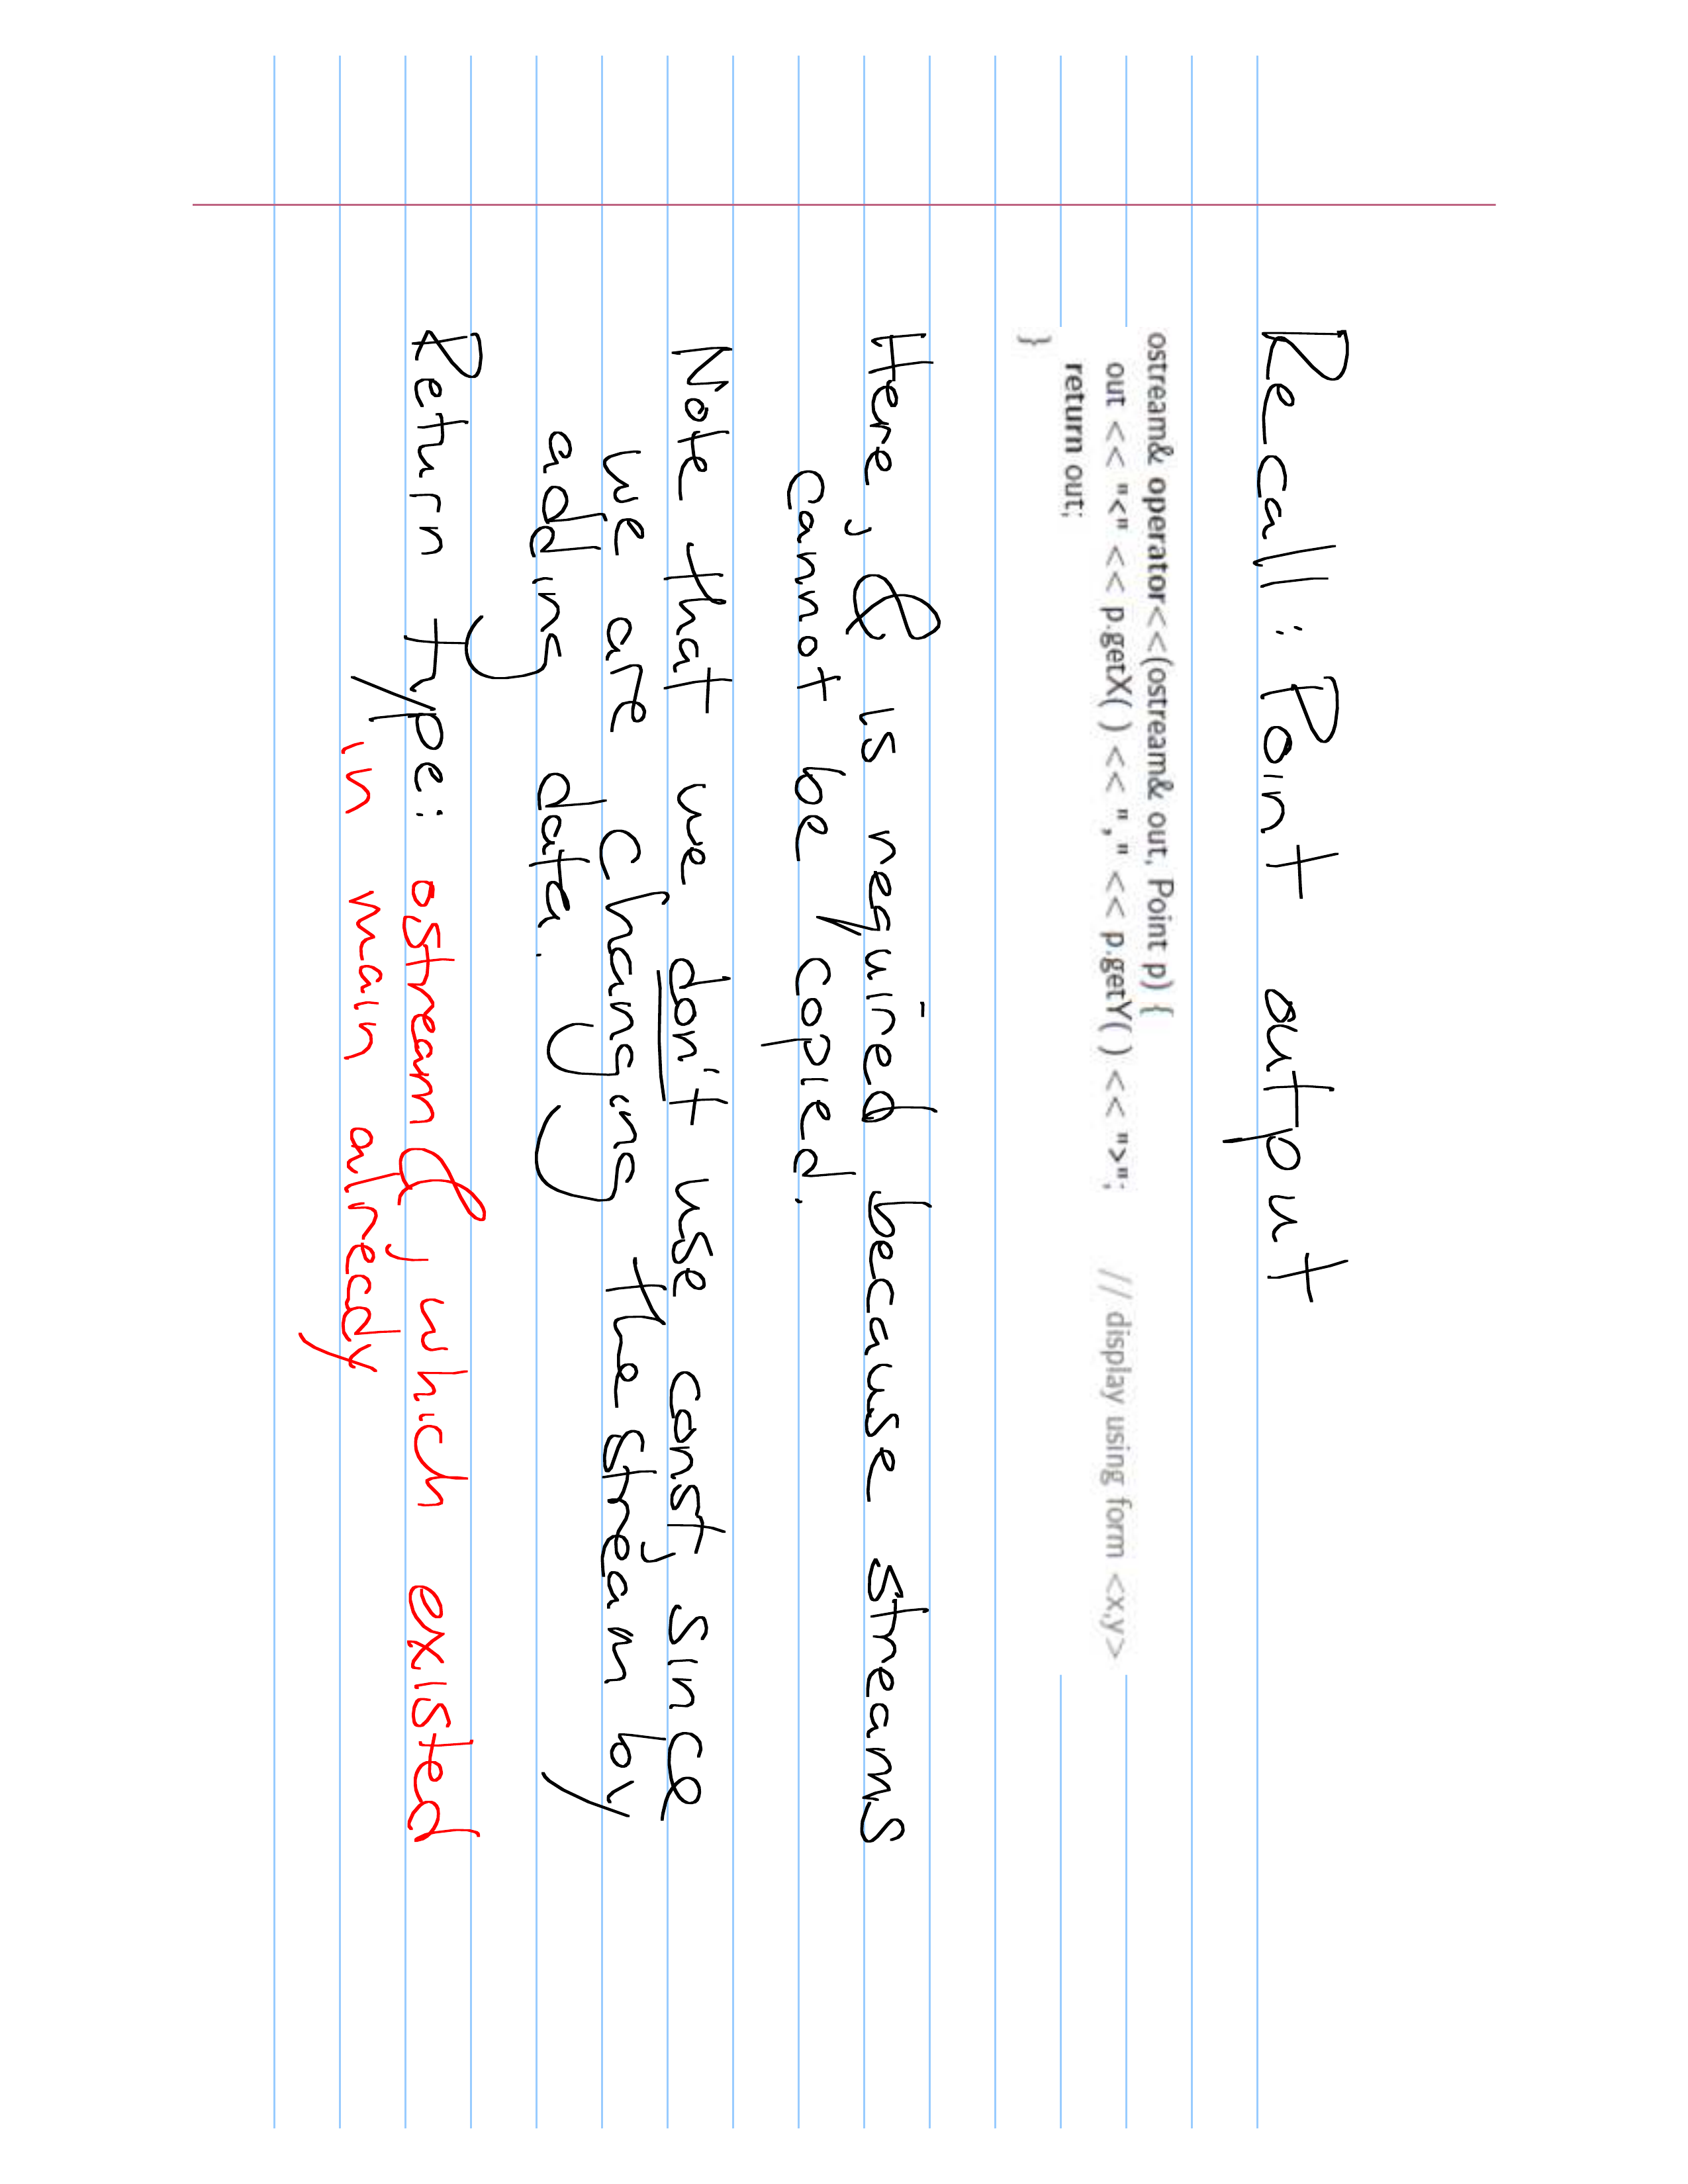 Recall: Point output
ostream& operator<<(ostream& out, Point p) {
out << "<" << p.getX( ) << "," << p.getY( ) << ">"; // display using form <x,y>
return out;
}
Here, & is required because streams
cannot be copied.
Note that we don't use const, since
we are changing the stream by
adding data.
Return type: ostream&, which existed
in main already